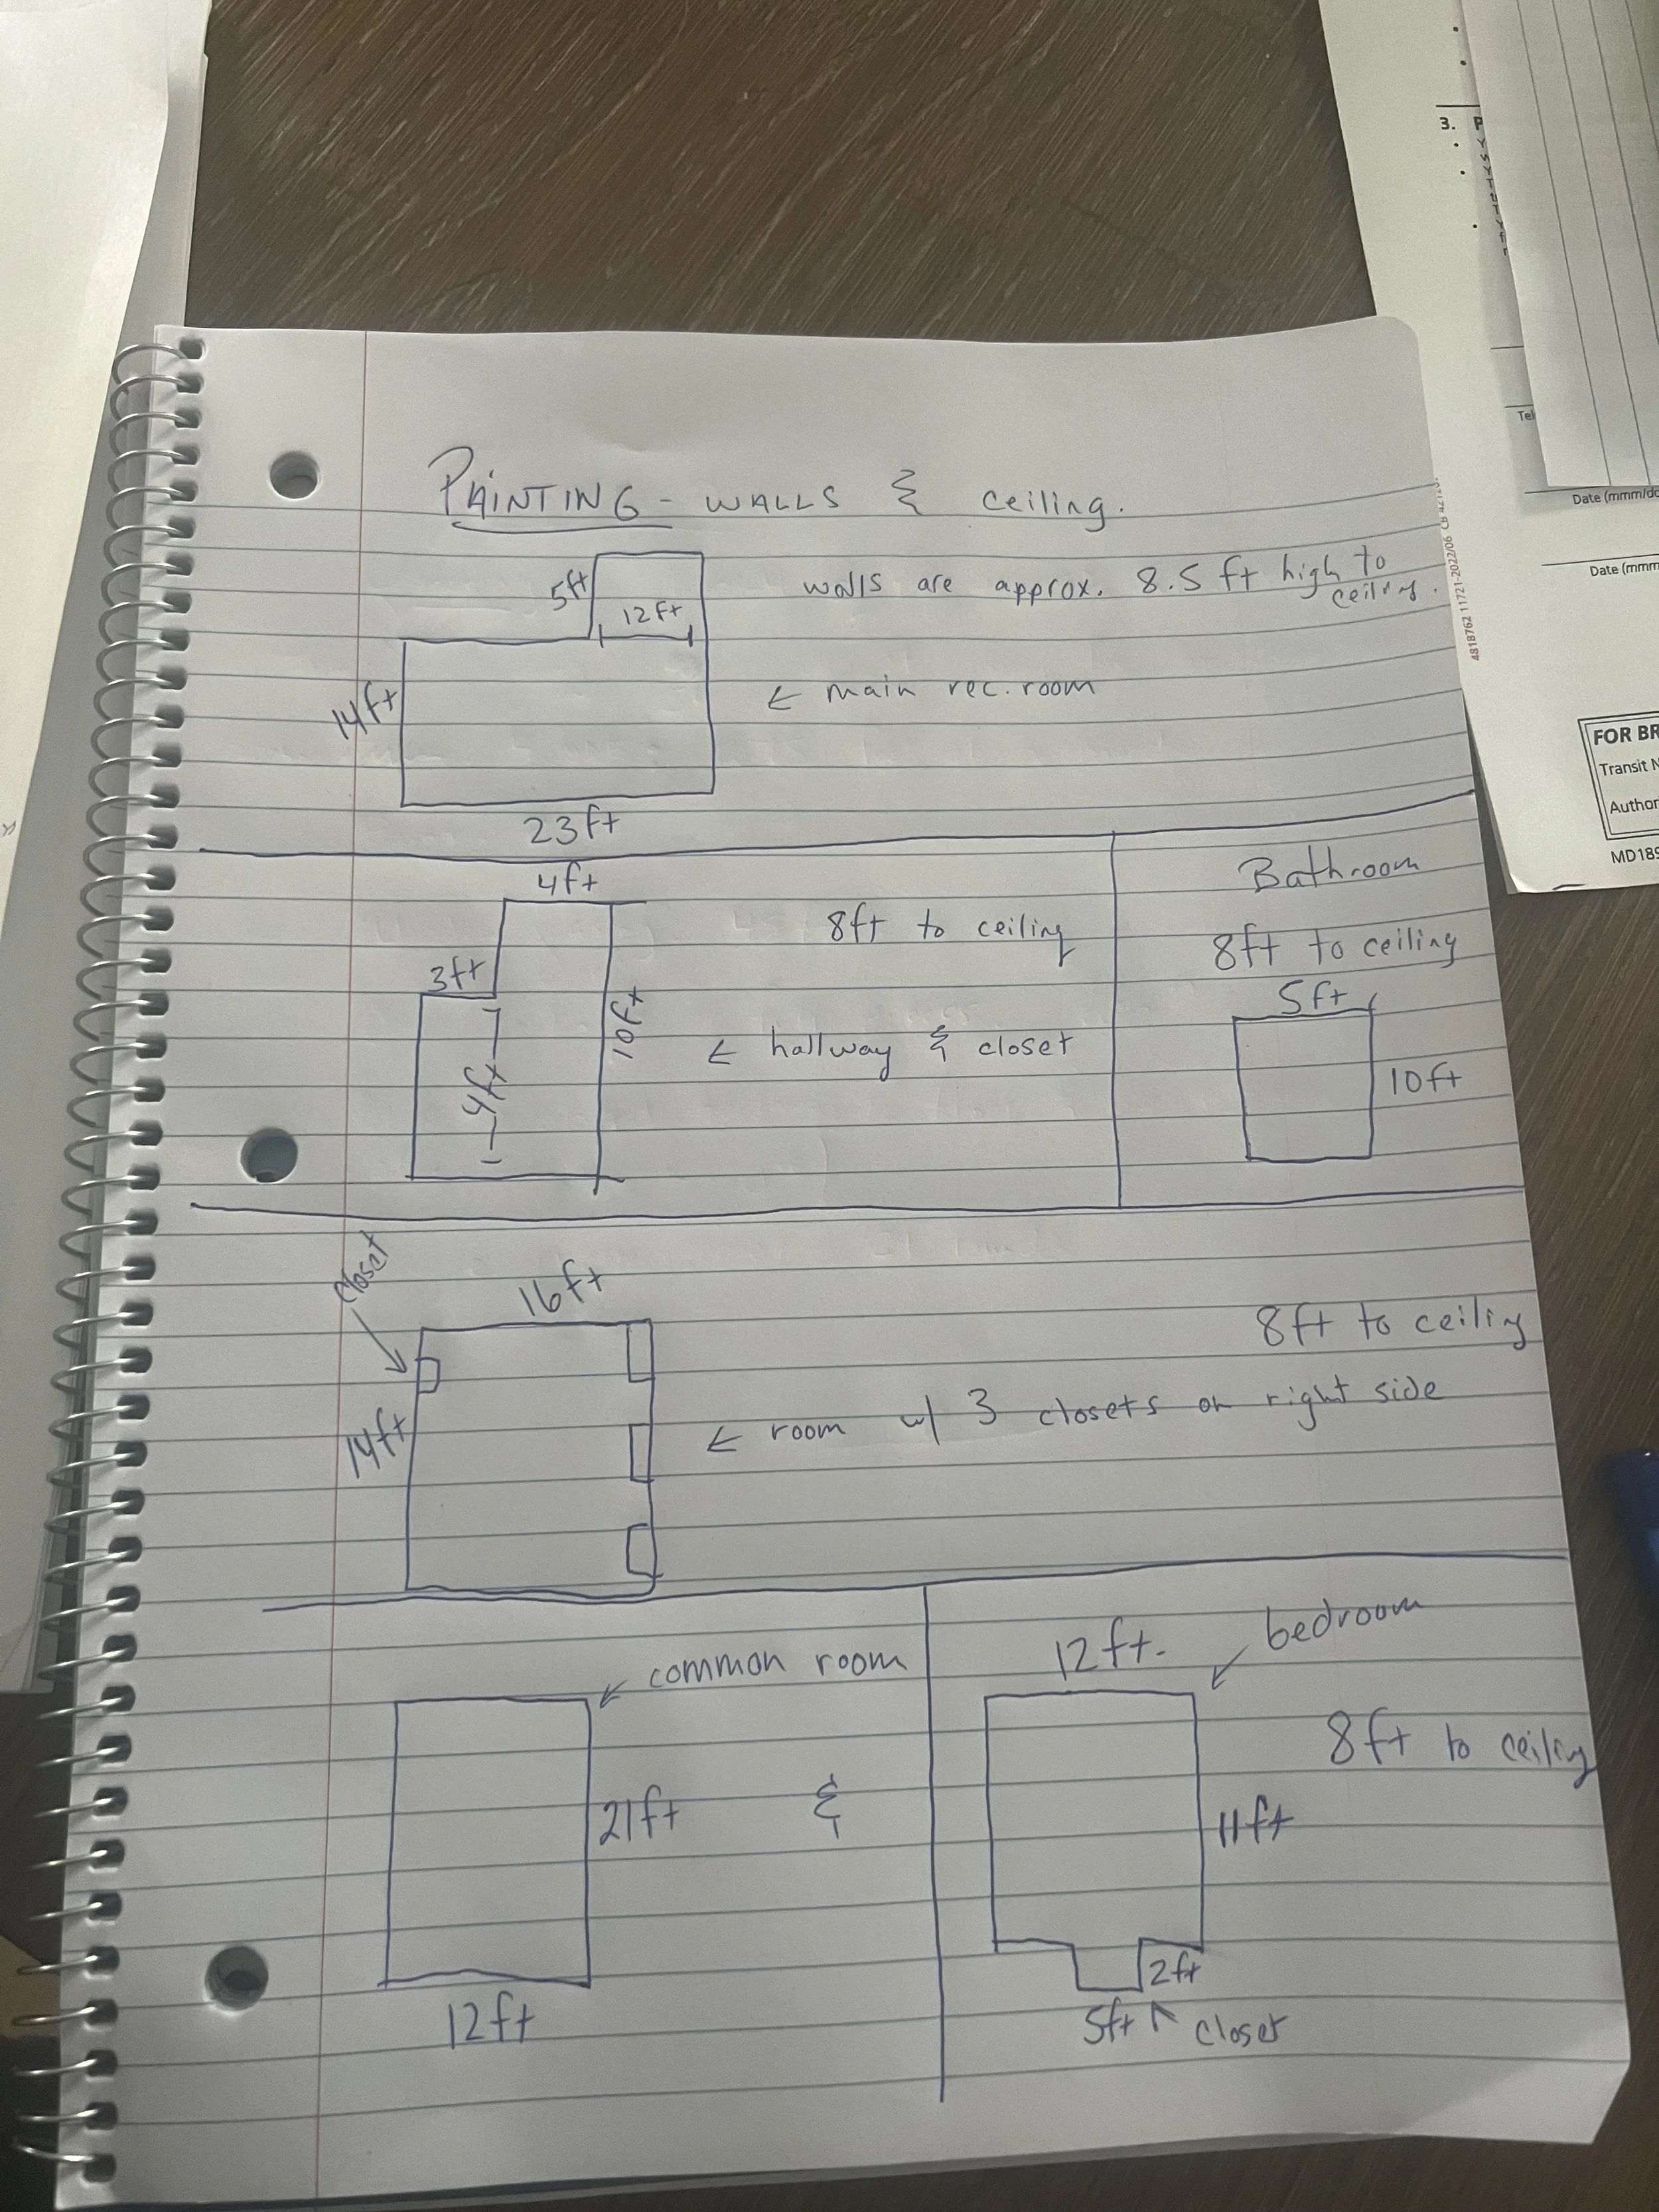 3. P
Tel
Date (mmm/dd
Date (mmm
FOR BR
Transit N
Author
MD189
4818762 11721-2022/06
PAINTING - WALLS & ceiling.
5ft
12ft
walls are approx. 8.5 ft high to
ceiling.
14ft
← main rec. room
23ft
4ft
8ft to ceiling
3ft
10ft
← hallway & closet
4ft
Bathroom
8ft to ceiling
5ft
10ft
closet
16ft
8ft to ceiling
14ft
← room w/ 3 closets on right side
common room
21ft
&
12ft
12ft.
bedroom
8ft to ceiling
11ft
2ft
5ft
closet